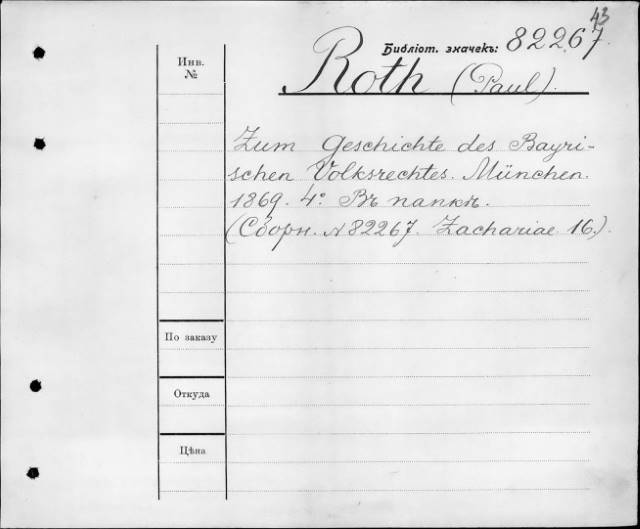 43
Библіот. значекъ: 82267.
Инв.
№
Roth (Paul).
Zum Geschichte des Bayri-
schen Volksrechtes. München.
1869. 4º. Въ папкѣ.
(Сборн. №82267. Zachariae 16.)
По заказу
Откуда
Цѣна